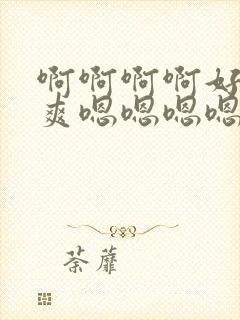 啊啊啊啊好
爽嗯嗯嗯嗯
荼蘼